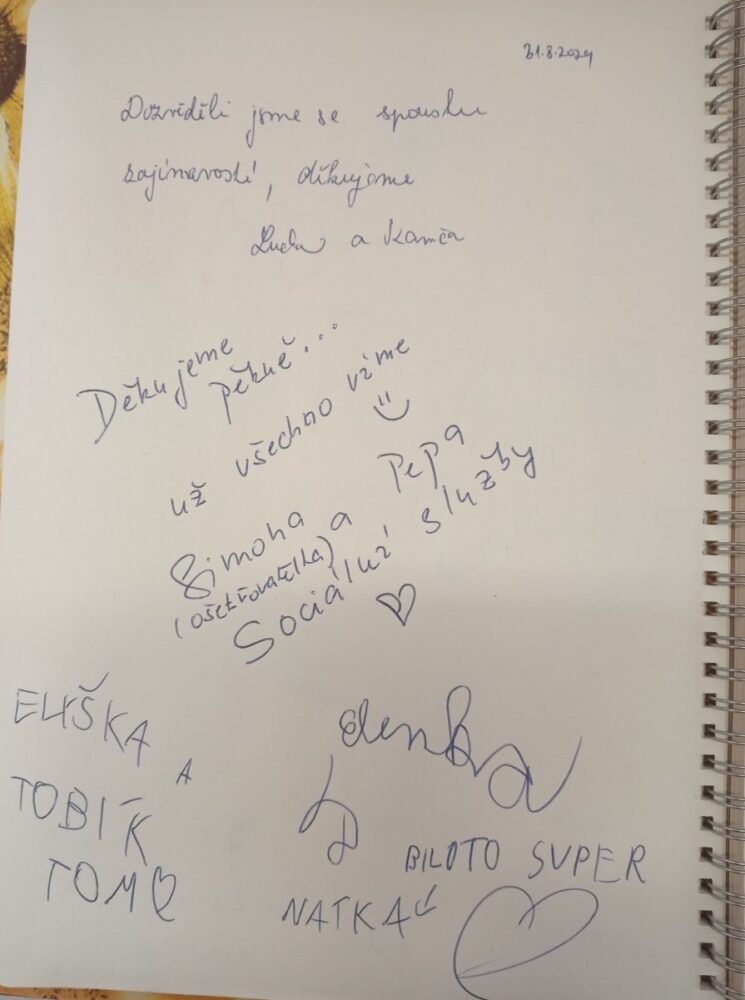 31.8.2024
Dozvěděli jsme se spoustu
zajímavostí, děkujeme
a Kamča
Děkujeme
pěkně...
už všechno víme
Simona a Pepa
(ošetřovatelka)
Sociální služby
ELIŠKA
A
TOBIK
TOM
denka
BILOTO SUPER
NATKA